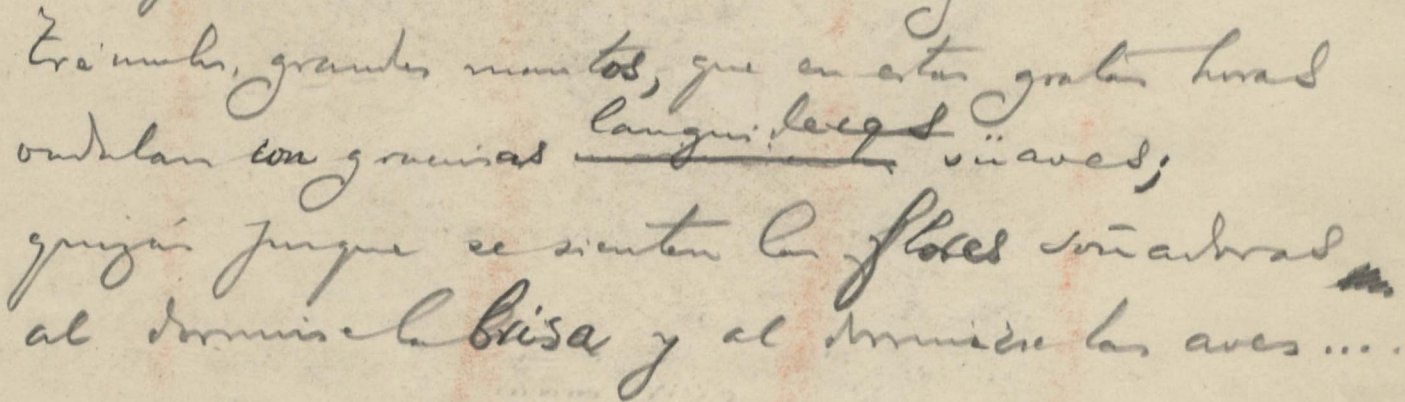 Trémulos, grandes mantos, que en estas gratas horas
ondulan con graciosas languideces süaves;
quizás porque se sienten las flores soñadoras
al dormirse la brisa y al dormirse las aves....